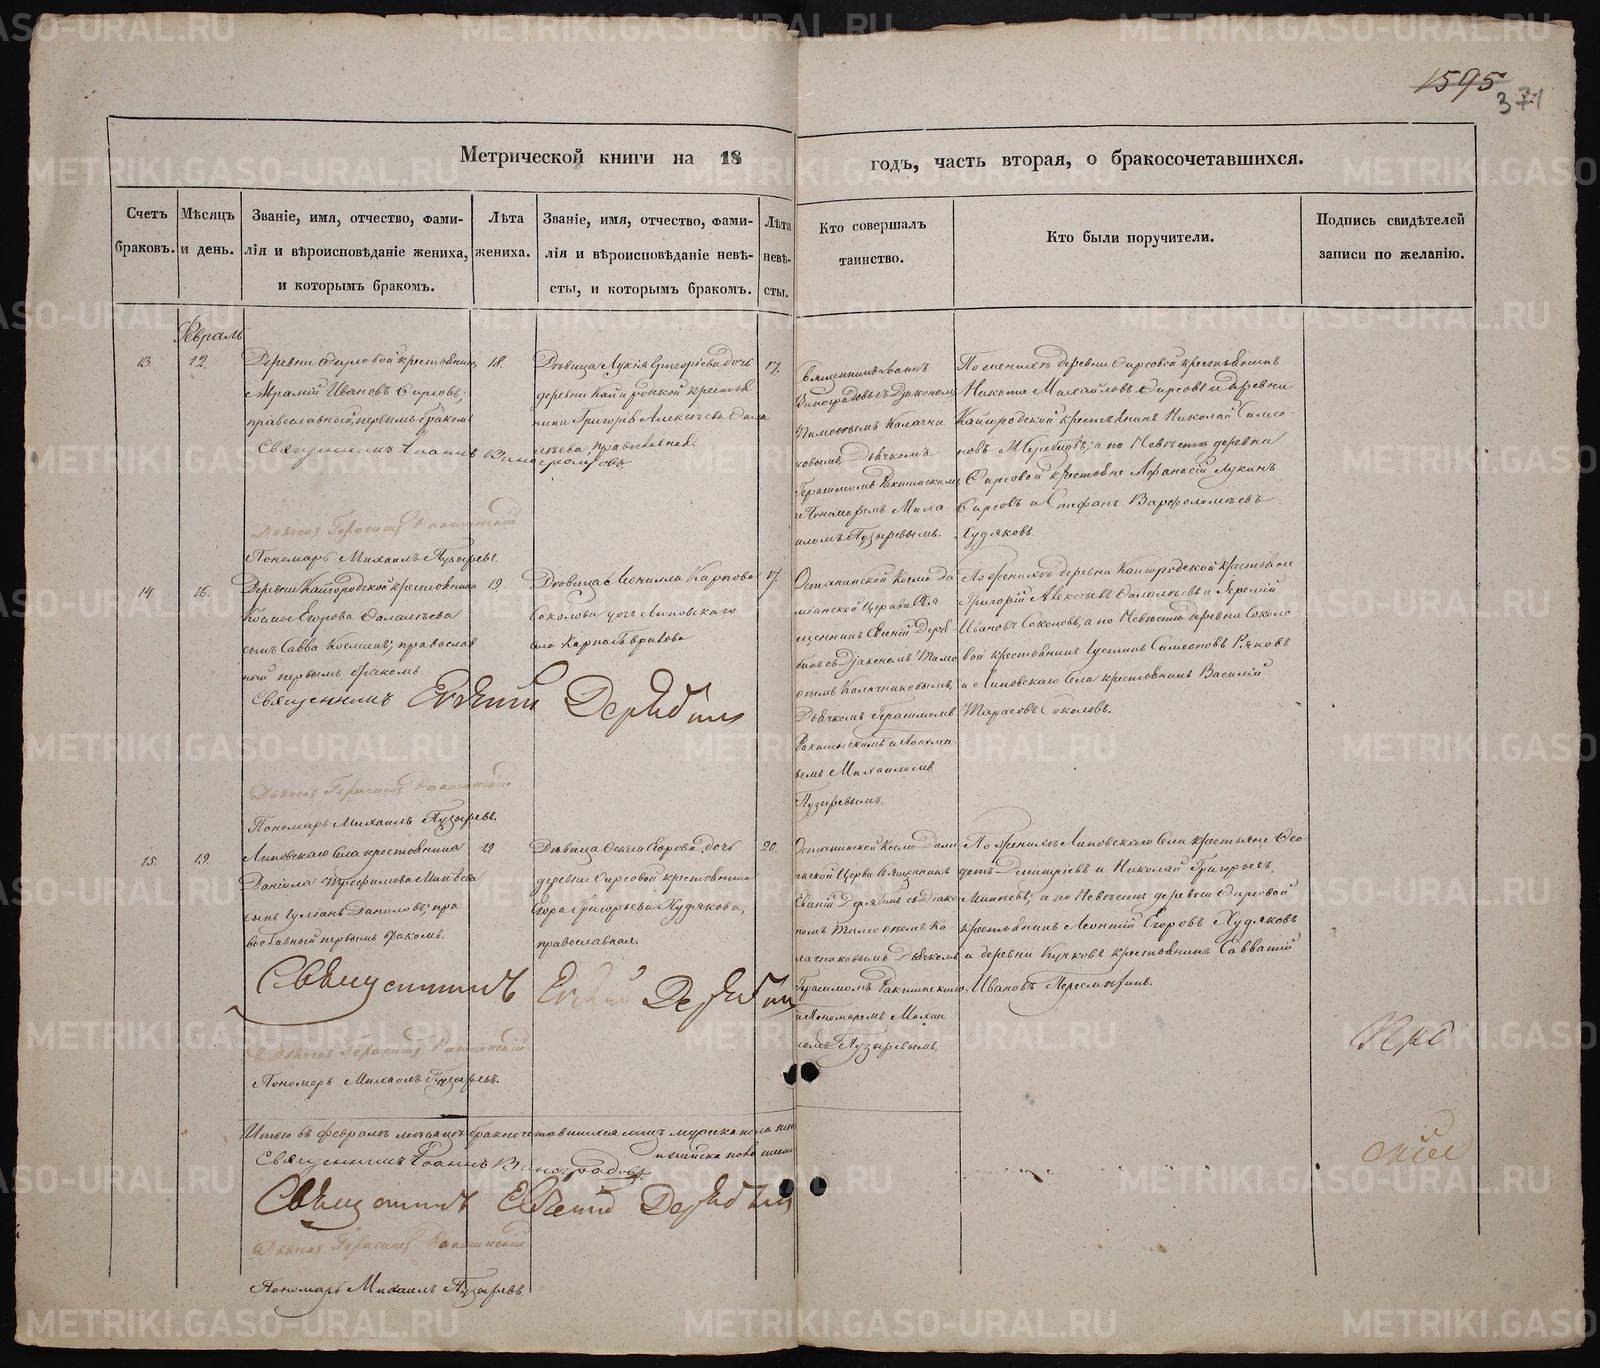 1595
371
Метрической книги на 18 годъ, часть вторая, о бракосочетавшихся.
Счетъ браковъ.
Мѣсяцъ и день.
Званіе, имя, отчество, фами-
лія и вѣроисповѣданіе жениха,
и которымъ бракомъ.
Лѣта
жениха.
Званіе, имя, отчество, фами-
лія и вѣроисповѣданіе невѣ-
сты, и которымъ бракомъ.
Лѣта
невѣ-
сты.
Кто совершалъ
таинство.
Кто были поручители.
Подпись свидѣтелей
записи по желанію.
Февраль
13.
12.
Деревни Фирсовой крестьянинъ
Ивановъ Фирсовъ,
православный, первымъ бракомъ
18.
Дѣвица Лукія Григоріева дочь
деревни Кайгородской крестья
нина Григорія Алексѣева Фала
лѣева, православная.
17.
Священникъ Іоаннъ
Виноградовъ съ Діакономъ
Тимофеемъ Калачни
ковымъ, Дьячкомъ
Герасимомъ Ракшинскимъ
и Пономаремъ Миха
иломъ Пузыревымъ.
По женихѣ деревни Фирсовой крестьянинъ
Никита Михайловъ Фирсовъ и деревни
Кайгородской крестьянинъ Николай Симео-
новъ; а по Невѣстѣ деревни
Фирсовой крестьяне Афанасій Лукинъ
Фирсовъ и Епифанъ Варфоломеевъ
Худяковъ.
Священникъ Іоаннъ Виноградовъ
Дьячекъ Герасимъ Ракшинскій
Пономарь Михаилъ Пузыревъ.
14
16.
Деревни Кайгородской крестьянина
Козмы Егорова Фалалѣева
сынъ Савва Косминъ, православ
ный первымъ бракомъ.
19.
Дѣвица Леонилла Карпова
Соколова дочь Липовскаго
села Карпа Гаврилова
17.
Останинской Космо Да
міанской Церкви Свя
щенникъ Евгеній Деря
бинъ съ Діакономъ Тимо
феемъ Калачниковымъ,
Дьячкомъ Герасимомъ
Ракшинскимъ и Понома
ремъ Михаиломъ
Пузыревымъ.
По женихѣ деревни Кайгородской крестьяне
Григорій Алексѣевъ Фалалѣевъ и
Ивановъ Соколовъ; а по Невѣстѣ деревни Соколо
вой крестьянинъ Іустинъ Симеоновъ Ряковъ
и Липовскаго села крестьянинъ Василій
Тарасовъ Соколовъ.
Священникъ Евгеній Дерябинъ
Дьячекъ Герасимъ Ракшинскій
Пономарь Михаилъ Пузыревъ.
15.
19.
Липовскаго села крестьянина
Даніила Трофимова Минѣева
сынъ Іуліанъ Даниловъ, пра
вославный первымъ бракомъ.
19
Дѣвица Фекла Егорова, дочь
деревни Фирсовой крестьянина
Егора Григорьева Худякова,
православная.
20.
Останинской Космо Дамі-
анской Церкви Священникъ
Евгеній Дерябинъ съ Діако
номъ Тимофеемъ Ка
лачниковымъ Дьячкомъ
Герасимомъ Ракшинскимъ
и Пономаремъ Михаи
ломъ Пузыревымъ.
По женихѣ Липовскаго села крестьяне Фео
дотъ Димитріевъ и Николай Григорьевъ
Минѣевъ; а по Невѣстѣ деревни Фирсовой
крестьянинъ Леонтій Егоровъ Худяковъ
и деревни Кучковъ крестьянинъ Савватій
Ивановъ
Священникъ Евгеній Дерябинъ
Дьячекъ Герасимъ Ракшинскій
Пономарь Михаилъ Пузыревъ.
Итого въ февралѣ мѣсяцѣ бракосочетавшихся лицъ мужеска пола
и женска пола
Священникъ Іоаннъ Виноградовъ
Священникъ Евгеній Дерябинъ
Дьячекъ Герасимъ Ракшинскій
Пономарь Михаилъ Пузыревъ.
METRIKI.GASO-URAL.RU